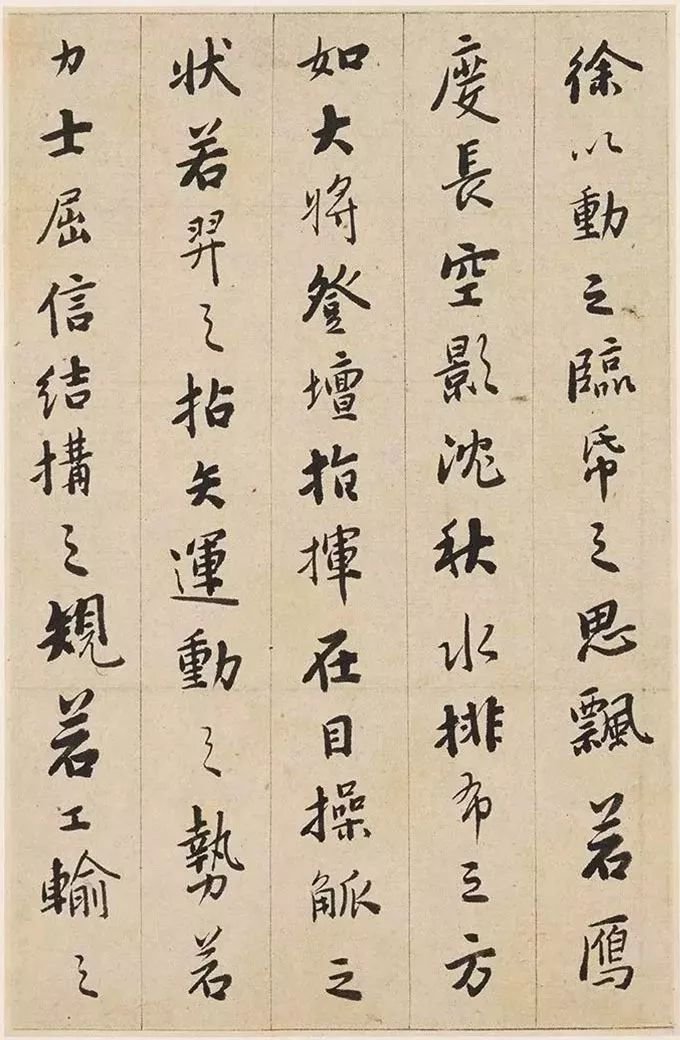 徐以動之臨帋之思飄若鴈
度長空影沈秋水排布之方
如大將登壇指揮在目操觚之
狀若羿之括矢運動之勢若
力士屈信結搆之規若工輸之